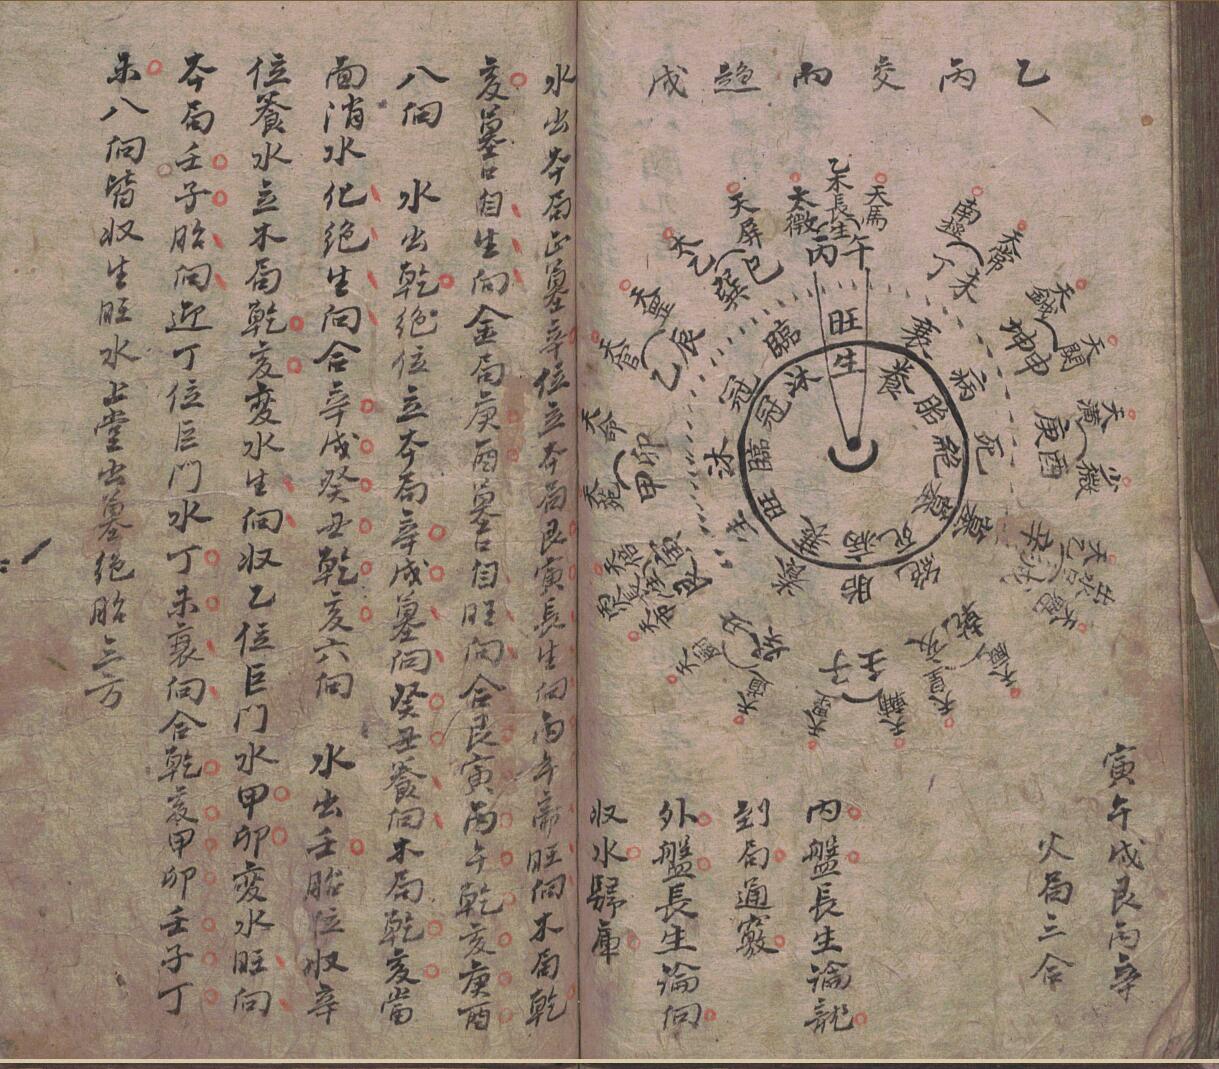 乙丙交而趋戍
寅午戍艮丙辛
火局三合
内盤長生論龍
到局通竅
外盤長生論向
收水歸庫
乙未長生
丙午
天馬
太微
天屏
巽巳
太乙
天罡
乙辰
天官
天命
甲卯
天苑
南極
丁未
天常
天鉞
坤申
天關
天漢
庚酉
少微
辛
天皇
天輔
壬子
天壘
天道
旺
衰
病
死
墓
絶
胎
養
生
沐
冠
臨
生
養
胎
絕
墓
死
病
衰
旺
臨
冠
沐
水出本局正墓辛位立本局艮寅長生向丙午帝旺向木局乾
亥墓口自生向金局庚酉墓口自旺向合艮寅丙午乾亥庚酉
八向　水出乾絶位立本局辛戍墓向癸丑養向木局乾亥當
面消水化絶生向合辛戍癸丑乾亥六向　水出壬胎位收辛
位養水立木局乾亥变水生向收乙位巨门水甲卯变水旺向
本局壬子胎向迎丁位巨門水丁未衰向合乾亥甲卯壬子丁
未八向皆収生旺水上堂出墓绝胎三方